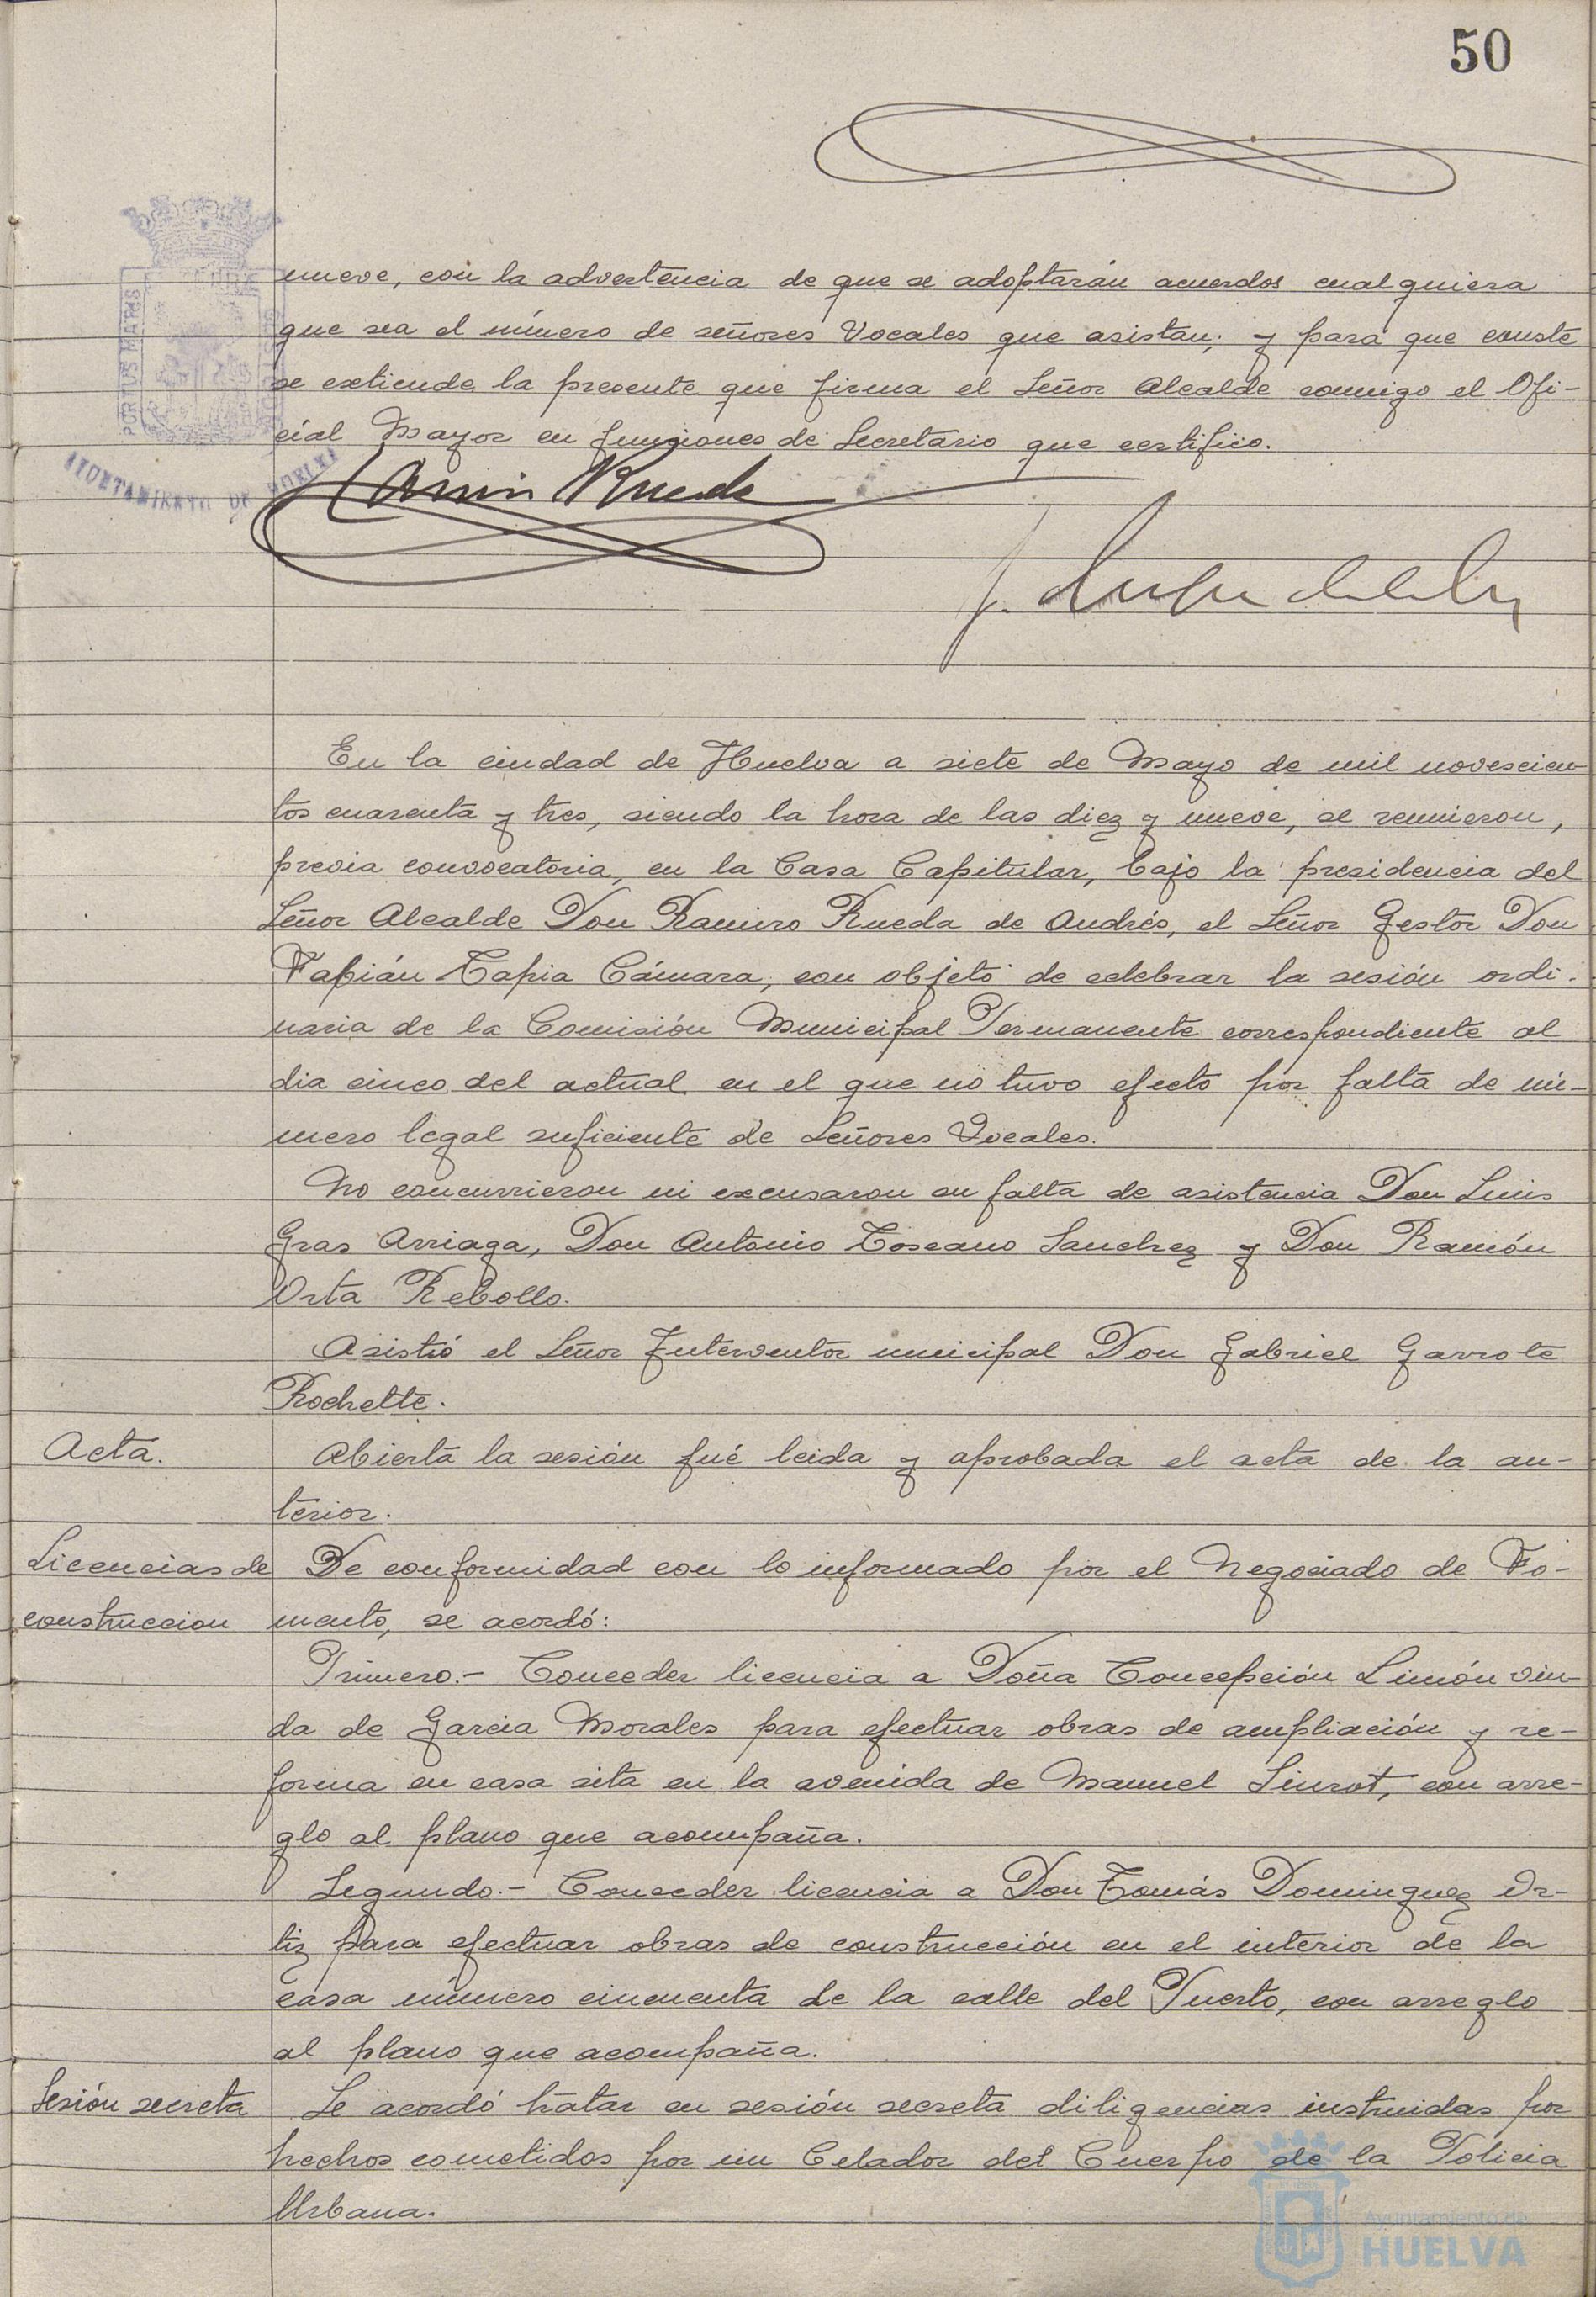 50
nueve, con la advertencia de que se adoptarán acuerdos cualquiera
que sea el número de señores Vocales que asistan; y para que conste
se extiende la presente que firma el Señor Alcalde conmigo el Ofi-
cial Mayor en funciones de Secretario que certifico.
PORTUS MARIS
AYUNTAMIENTO DE HUELVA
Ramiro Rueda
En la ciudad de Huelva a siete de Mayo de mil novescien-
tos cuarenta y tres, siendo la hora de las diez y nueve, se reunieron,
previa convocatoria, en la Casa Capitular, bajo la presidencia del
Señor Alcalde Don Ramiro Rueda de Andrés, el Señor Gestor Don
Fabián Tapia Cámara, con objeto de celebrar la sesión ordi-
naria de la Comisión Municipal Permanente correspondiente al
dia cinco del actual en el que no tuvo efecto por falta de nú-
mero legal suficiente de Señores Vocales.
No concurrieron ni excusaron su falta de asistencia Don Luis
Gras Arriaga, Don Antonio Toscano Sanchez y Don Ramón
Orta Rebollo.
Asistió el Señor Interventor municipal Don Gabriel Garrote
Rochette.
Acta.
Abierta la sesión fué leida y aprobada el acta de la an-
terior.
Licencias de
construccion
De conformidad con lo informado por el Negociado de Fo-
mento, se acordó:
Primero.- Conceder licencia a Doña Concepción Limón viu-
da de Garcia Morales para efectuar obras de ampliación y re-
forma en casa sita en la avenida de Manuel Siurot, con arre-
glo al plano que acompaña.
Segundo.- Conceder licencia a Don Tomás Dominguez Or-
tiz para efectuar obras de construcción en el interior de la
casa número cincuenta de la calle del Puerto, con arreglo
al plano que acompaña.
Sesión secreta
Se acordó tratar en sesión secreta diligencias instruidas por
hechos cometidos por un Celador del Cuerpo de la Policia
Urbana.
Ayuntamiento de
HUELVA